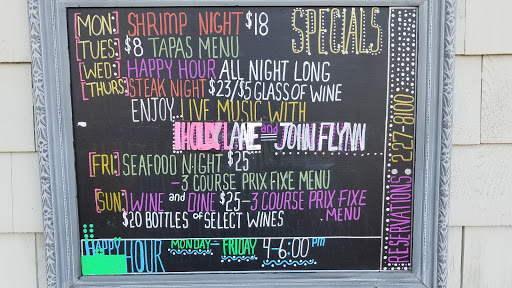 SPECIALS
[MON:] SHRIMP NIGHT $18
[TUES:] $8 TAPAS MENU
[WED:] HAPPY HOUR ALL NIGHT LONG
[THURS:] STEAK NIGHT $23/$5 GLASS OF WINE
ENJOY... LIVE MUSIC WITH
HOLLY LANE and JOHN FLYNN
[FRI:] SEAFOOD NIGHT $25
-3 COURSE PRIX FIXE MENU
[SUN:] WINE and DINE $25-3 COURSE PRIX FIXE MENU
$20 BOTTLES of SELECT WINES
HAPPY HOUR MONDAY-FRIDAY 4-6:00 PM
RESERVATIONS: 227-8100